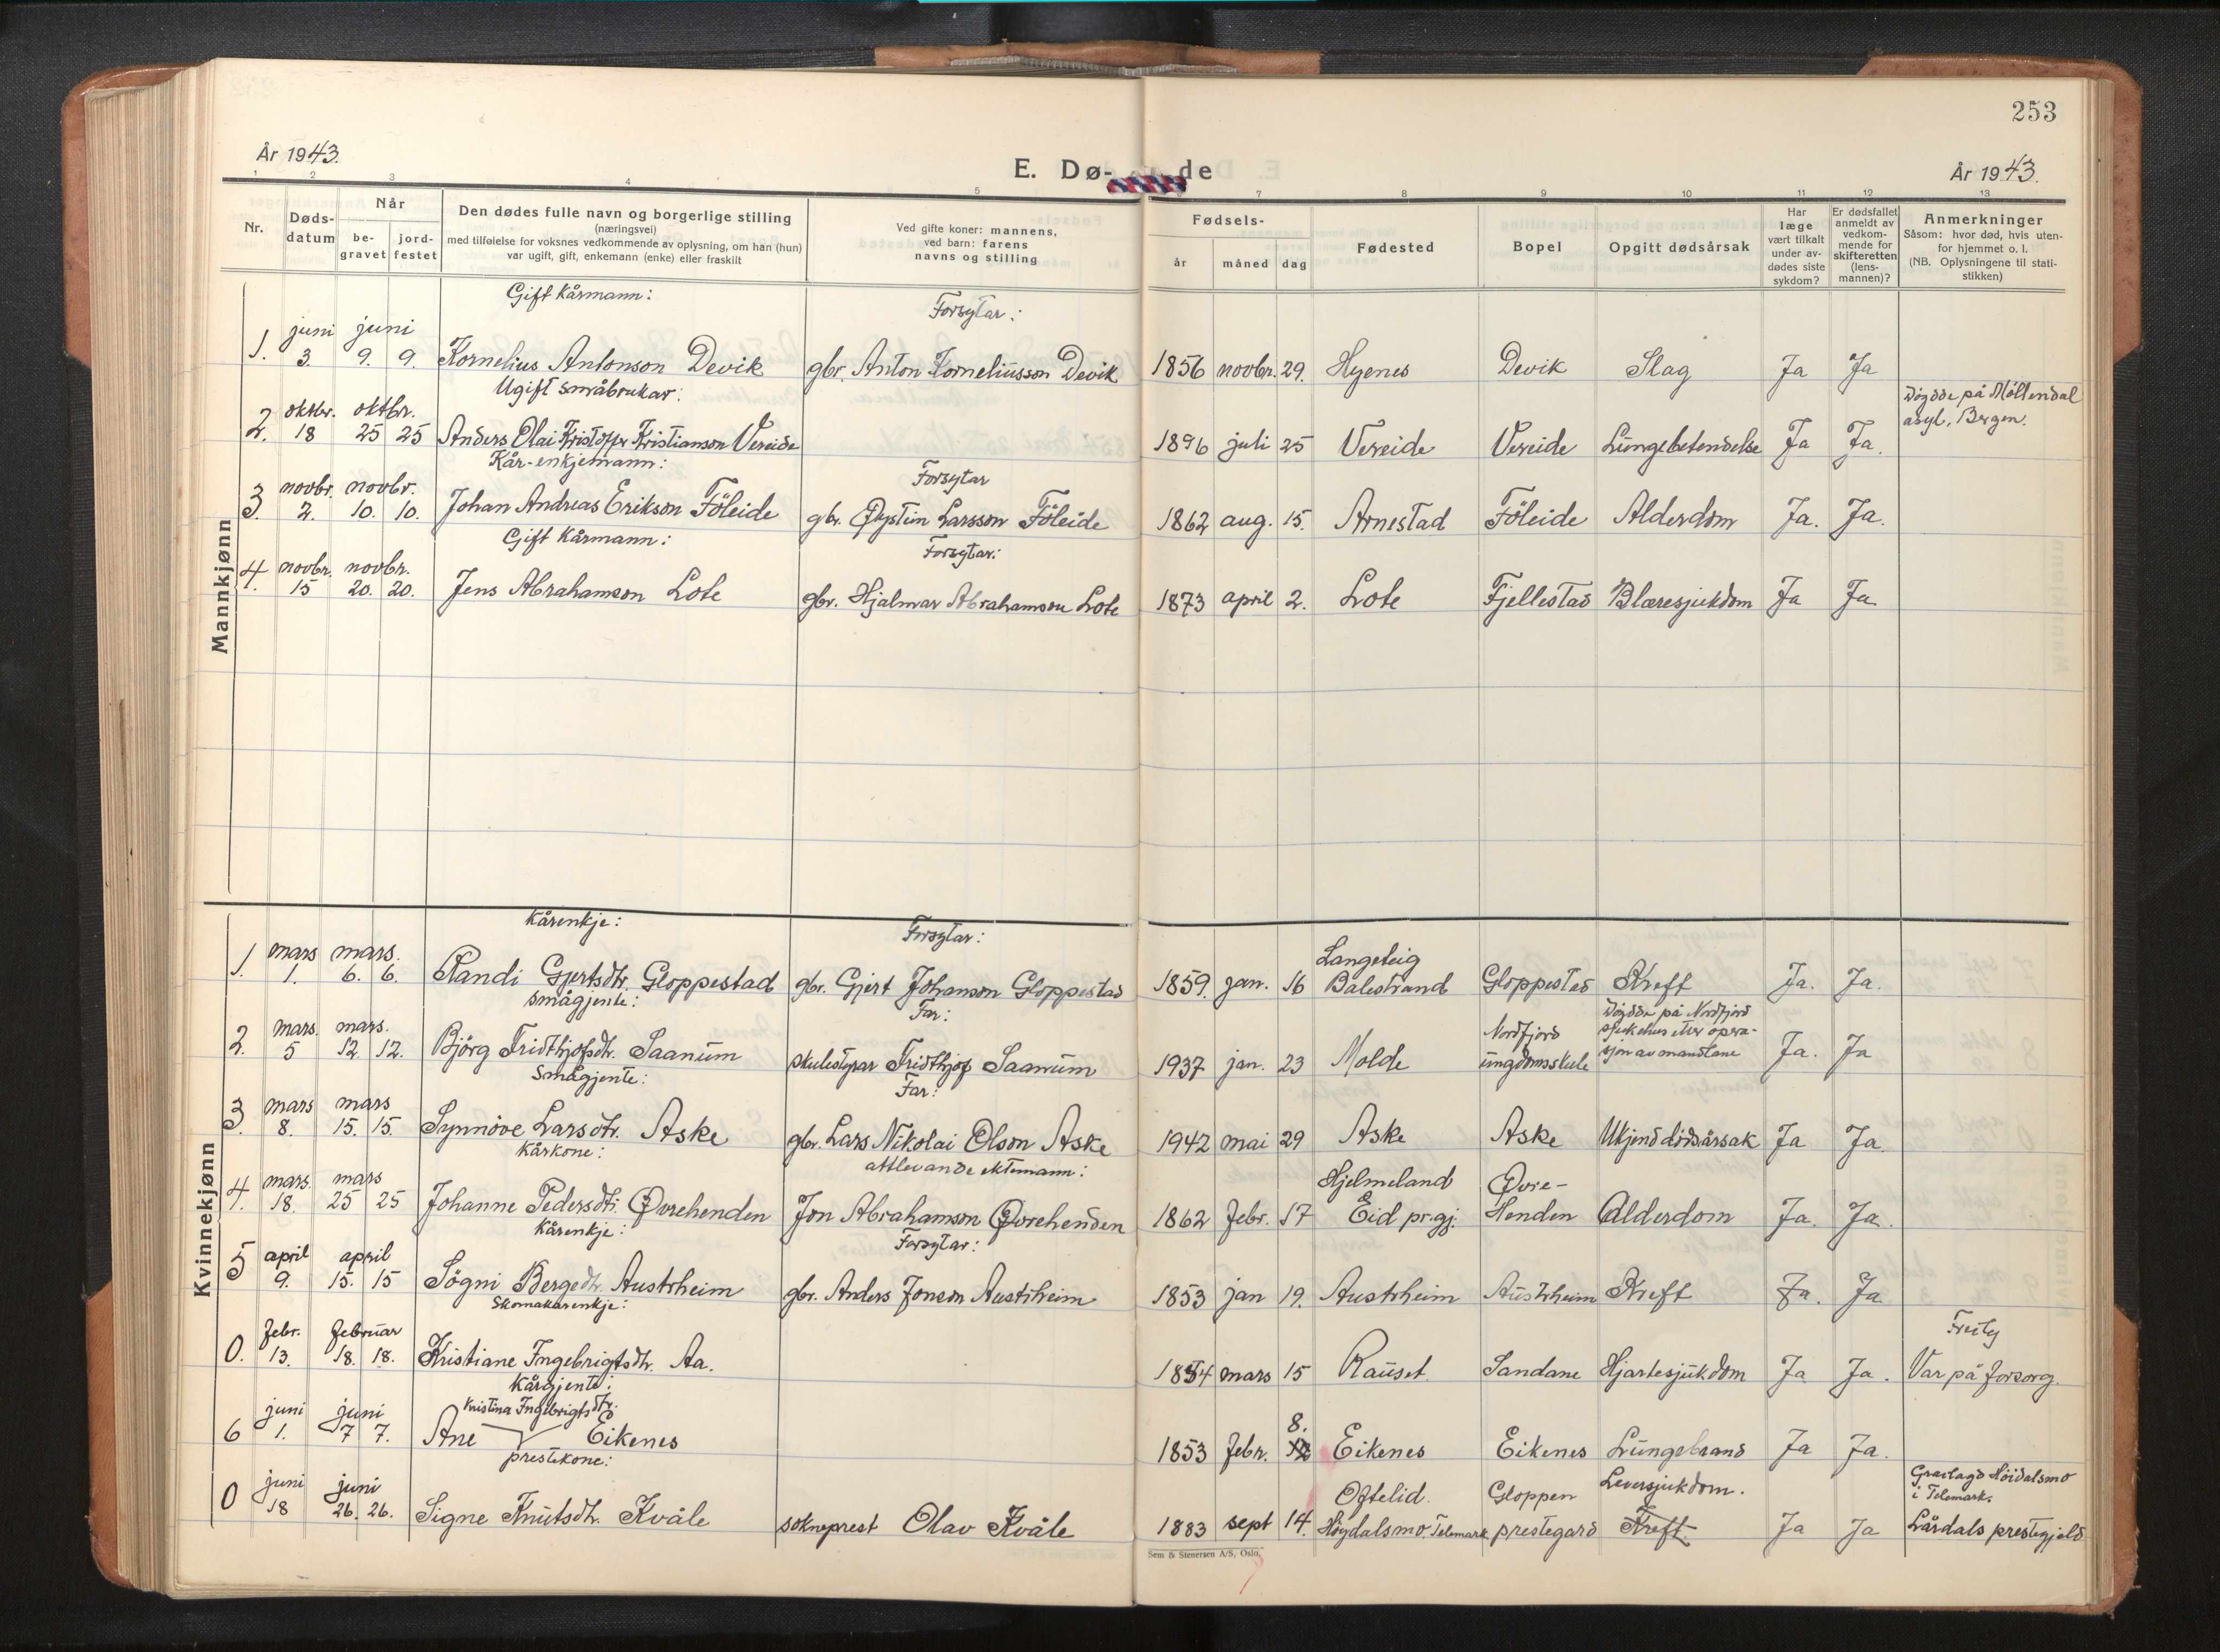 253
År 1943.
E. Dø- de
År 1943.
1 2 3 4 5 7 8 9 10 11 12 13
Nr.
Døds-
datum
Når
be-
gravet
jord-
festet
Den dødes fulle navn og borgerlige stilling
(næringsvei)
med tilføielse for voksnes vedkommende av oplysning, om han (hun)
var ugift, gift, enkemann (enke) eller fraskilt
Ved gifte koner: mannens,
ved barn: farens
navns og stilling
Fødsels-
år måned dag
Fødested
Bopel
Opgitt dødsårsak
Har
læge
vært tilkalt
under av-
dødes siste
sykdom?
Er dødsfallet
anmeldt av
vedkom-
mende for
skifteretten
(lens-
mannen)?
Anmerkninger
Såsom: hvor død, hvis uten-
for hjemmet o. l.
(NB. Oplysningene til stati-
stikken)
Mannkjønn
Gift Kårmann: Forsytar:
juni juni
1. 3. 9. 9. Kornelius Antonson Devik gbr. Anton Korneliusson Devik 1856 novbr. 29. Hyenes Devik Slag Ja Ja
Ugift småbrukar: Døydde på Möllendal
oktbr. oktbr. asyl, Bergen.
2. 18 25 25 Anders Olai Kristoffer Kristianson Vereide 1896 juli 25 Vereide Vereide Lungebetendelse Ja Ja.
Kår-enkjemann: Forsytar
novbr. novbr.
3. 2. 10. 10. Johan Andreas Erikson Föleide gbr. Øystein Larsson Föleide 1862 aug. 15. Arnestad Föleide Alderdom Ja. Ja.
Gift Kårmann: Forsytar:
novbr. novbr.
4. 15 20. 20. Jens Abrahamson Lote gbr. Hjalmar Abrahamson Lote 1873 april 2. Lote Fjellestad Blæresjukdom Ja Ja
Kvinnekjønn
Kårenkje: Forsytar:
mars mars. Langeteig
1. 1. 6. 6. Randi Gjertsdtr. Gloppestad gbr. Gjert Johanson Gloppestad 1859. jan. 16 Balestrand Gloppestad Kreft Ja. Ja.
Smågjente: Far: Døydde på Nordfjord
mars. mars. Nordfjord sjukehus etter opera-
2. 5 12 12. Björg Fridthjofsdtr. Saanum skulestyrar Fridthjof Saanum 1937 jan. 23 Molde ungdomsskule sjon av mandlane Ja. Ja
Smågjente: Far:
mars mars
3. 8. 15. 15. Synnöve Larsdtr. Aske gbr. Lars Nikolai Olson Aske 1942 mai 29 Aske Aske Ukjend dødsårsak Ja Ja
Kårkone: attlevande ektemann:
mars. mars Hjelmeland Øvre-
4. 18. 25 25 Johanne Pedersdtr. Øvrehenden Jon Abrahamson Øvrehenden 1862 febr. 17 Eid pr.gj. Henden Alderdom Ja. Ja.
Kårenkje: Forsytar:
april april
5 9. 15. 15 Sögni Bergedtr. Austrheim gbr. Anders Jonson Austrheim 1853 jan 19. Austrheim Austrheim Kreft Ja. Ja
Skomakarenkje:
febr. februar
0. 13. 18. 18. Kristiane Ingebrigtsdtr. Aa. 1854 mars 15 Rauset Sandane Hjartesjukdom Ja Ja. Var på forsorg.
Kårgjente:
juni juni Kristina Ingebrigtsdtr. 8.
6 1. 7 7. Ane Eikenes 1853 febr. Eikenes Eikenes Lungebrand Ja Ja.
prestekone:
juni juni Oftelid. Gloppen Leversjukdom. Gravlagd Höidalsmo
i Telemark.
0 18 26. 26. Signe Knutsdtr. Kvåle sokneprest Olav Kvåle 1883 sept 14. Høydalsmo. Telemark prestegard Kreft Ja Ja Lårdals prestegjeld
Sem & Stenersen A/S, Oslo.